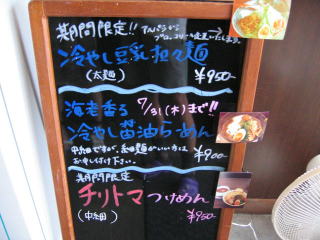 期間限定!!
冷やし豆乳担々麺
(太麺)
¥950-
海老香る 7/31(木)まで!!
冷やし醤油らーめん
中太麺ですが、細麺がいい方は
お申し付け下さい。
¥900-
期間限定
チリトマつけめん
(中細麺)
¥950-